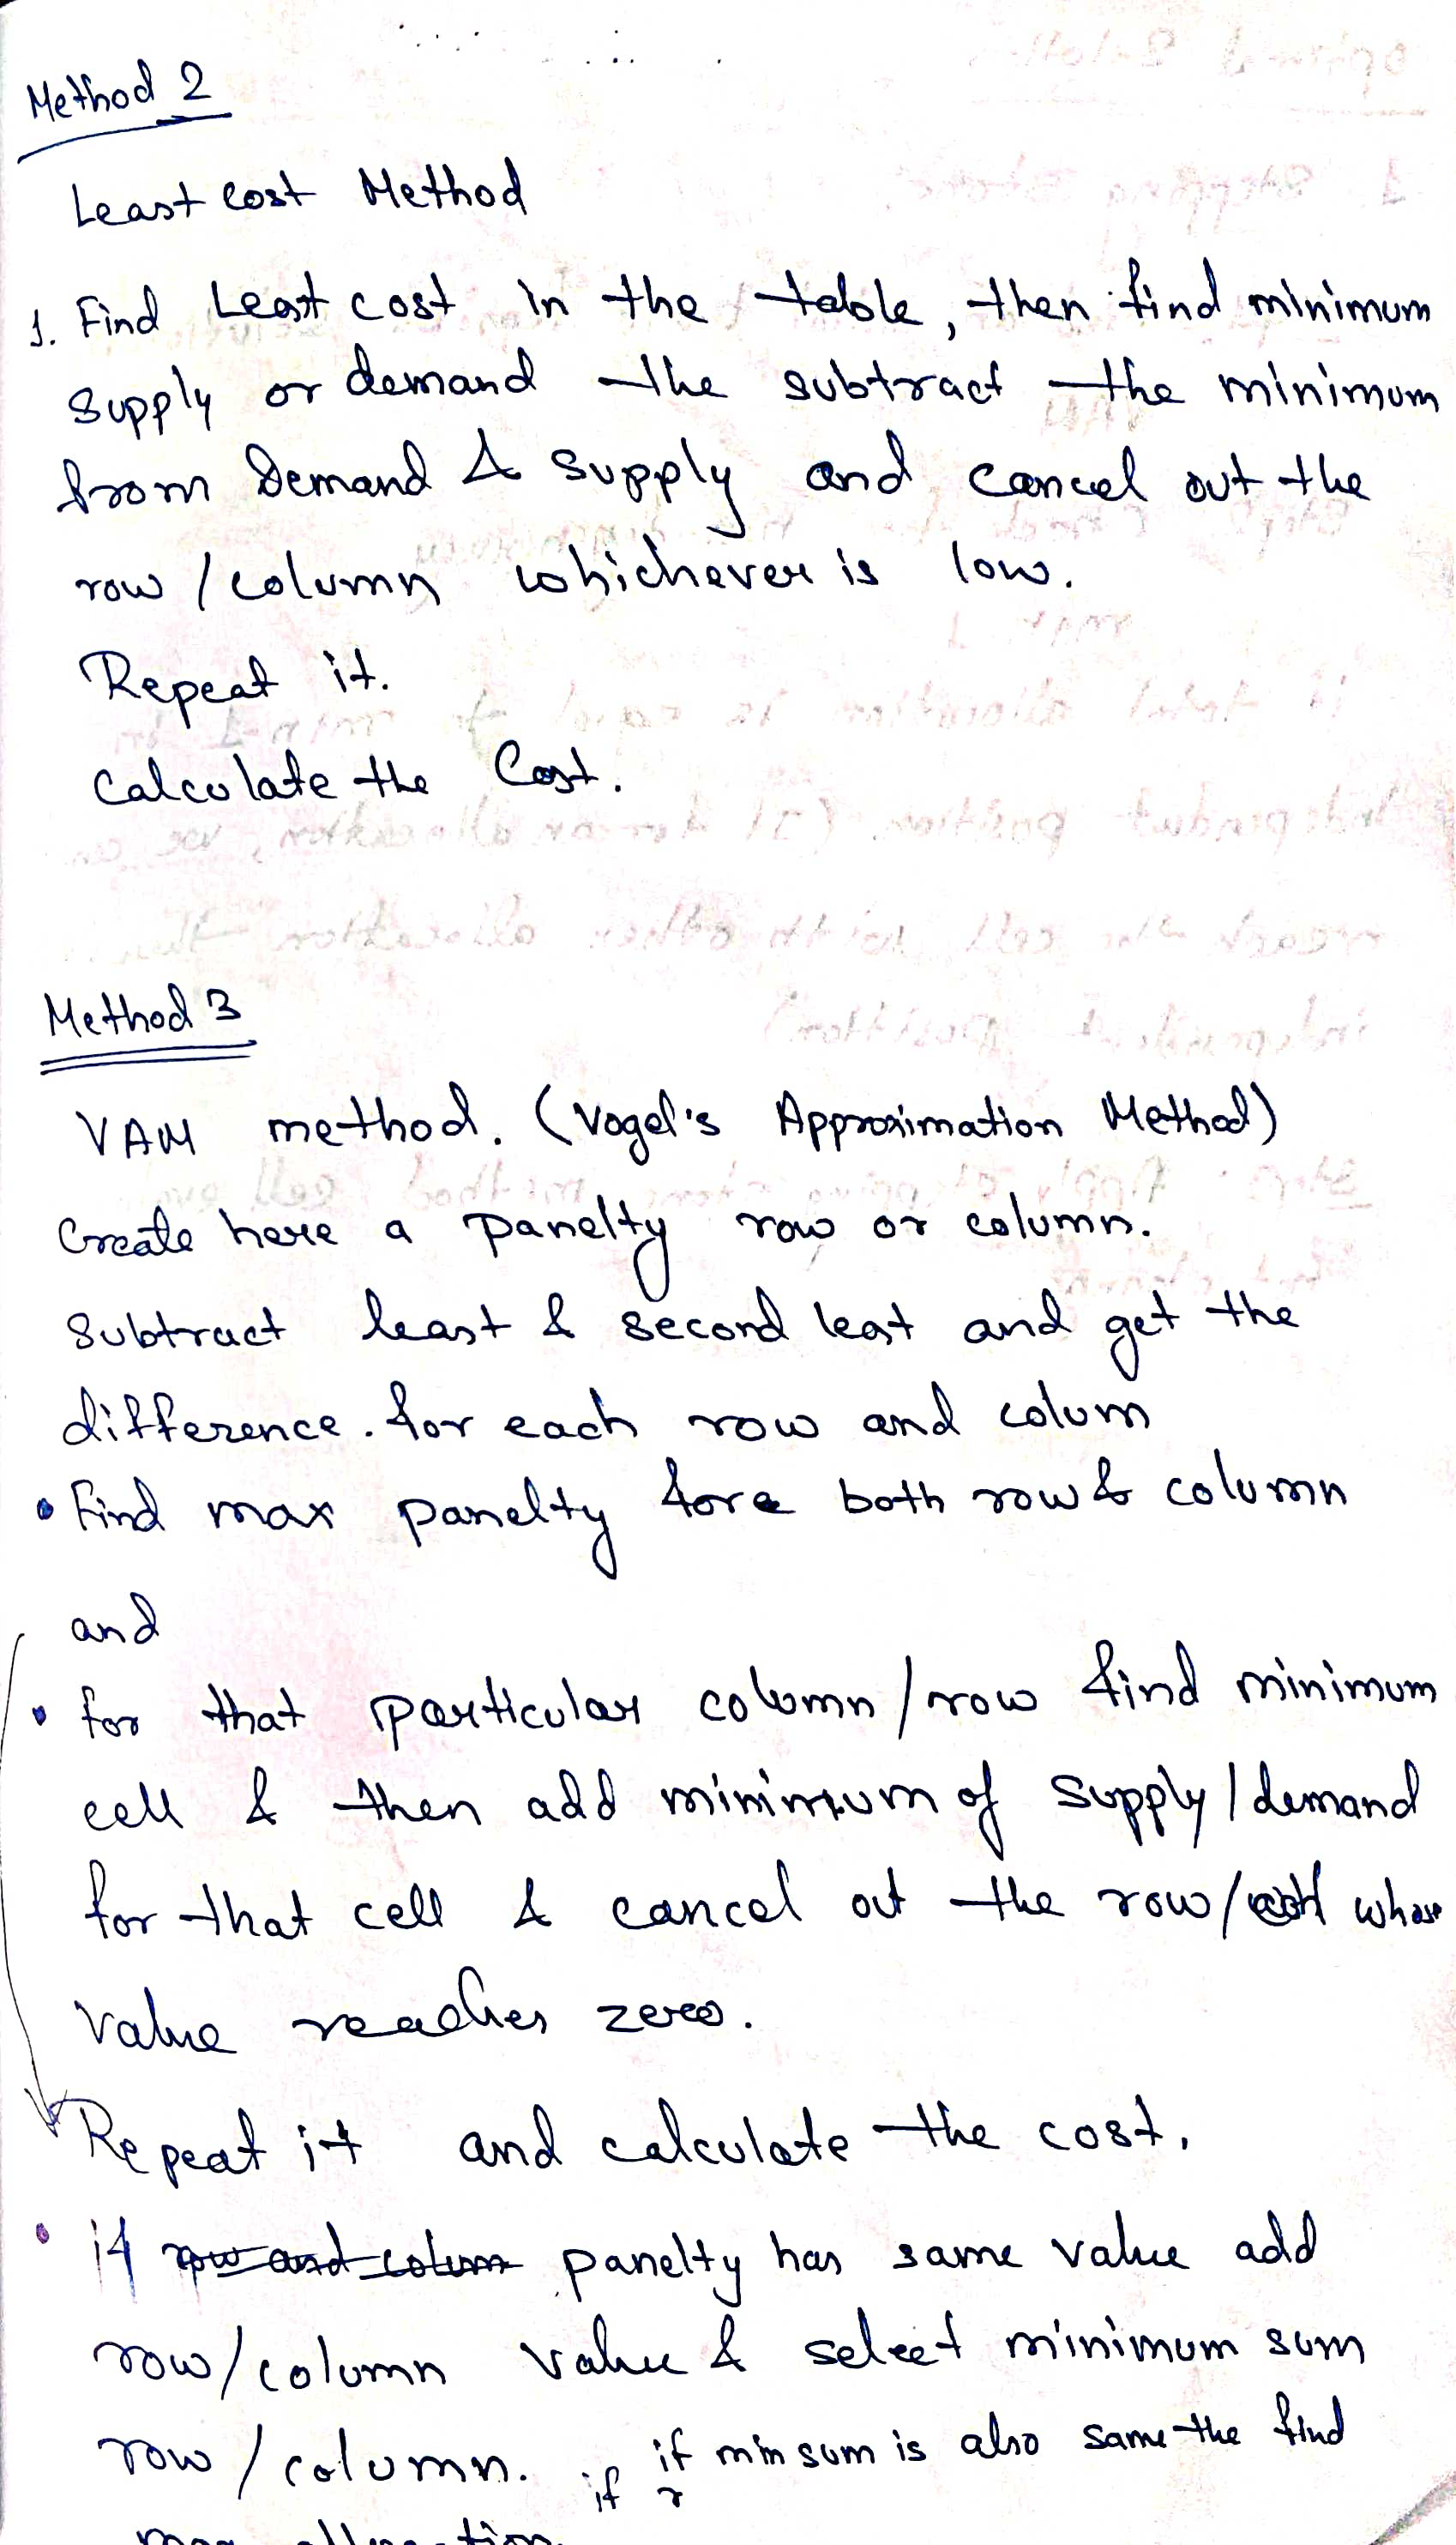 Method 2
Least cost Method
1. Find Least cost in the table, then find minimum
supply or demand the subtract the minimum
from Demand & supply and cancel out the
row / column whichever is low.
Repeat it.
Calculate the Cost.
Method 3
VAM method. (Vogel's Approximation Method)
Create here a panelty row or column.
Subtract least & second least and get the
difference. for each row and colum
• Find max panelty fore both row & column
and
• for that particular column / row find minimum
cell & then add minimum of supply / demand
for that cell & cancel out the row / whose
value reaches zero.
Repeat it and calculate the cost.
• if row and colum panelty has same value add
row/column value & select minimum sum
row / column. if if min sum is also same the find
max allocation